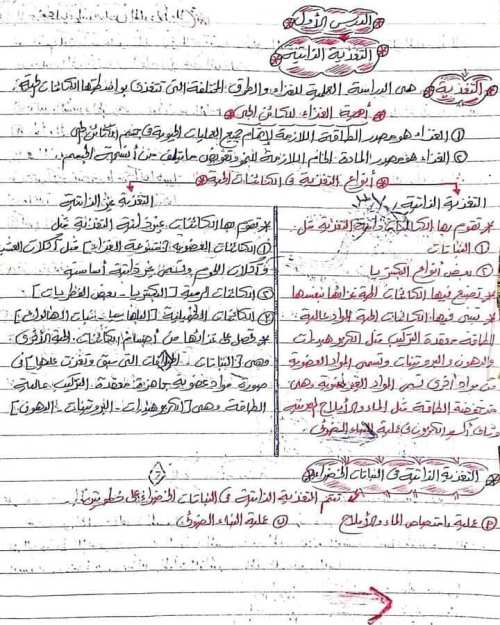 الدرس الأول
التغذية الذاتية
التغذية هى الدراسة العلمية للغذاء والطرق المختلفة التى تتغذى بواسطتها الكائنات الحية
أهمية الغذاء للكائن الحى
① الغذاء هو مصدر الطاقة اللازمة لإتمام جميع العمليات الحيوية فى جسم الكائن الحى
② الغذاء هو مصدر المادة الخام اللازمة للنمو وتعويض ما يتلف من أنسجة الجسم
أنواع التغذية فى الكائنات الحية
التغذية الذاتية
* تقوم بها الكائنات ذاتية التغذية مثل
① النباتات
② بعض أنواع البكتريا
* تصنع فيها الكائنات الحية غذائها بنفسها
* تبنى فيها الكائنات الحية المواد عالية
الطاقة معقدة التركيب مثل الكربوهيدرات
والدهون والبروتينات وتسمى المواد العضوية
من مواد أخرى تسمى المواد الغير عضوية وهى
منخفضة الطاقة مثل الماء والأملاح المعدنية
وثانى أكسيد الكربون فى عملية البناء الضوئى
التغذية غير الذاتية
* تقوم بها الكائنات غير ذاتية التغذية مثل
① الكائنات العضوية [متنوعة الغذاء] مثل آكلات العشب
وآكلات اللحوم وتسمى غير ذاتية أساسية
② الكائنات الرمية [البكتريا - بعض الفطريات]
③ الكائنات الطفيلية [البلهارسيا - نبات الهالوك]
* تحصل على غذائها من أجسام الكائنات الحية الأخرى
وهى [النباتات - الحيوانات التى سبق وتغذت عليها] فى
صورة مواد عضوية جاهزة معقدة التركيب عالية
الطاقة وهى [الكربوهيدرات - البروتينات - الدهون]
التغذية الذاتية فى النباتات الخضراء
تتم التغذية الذاتية فى النباتات الخضراء على خطوتين
① عملية امتصاص الماء والأملاح ② عملية البناء الضوئى